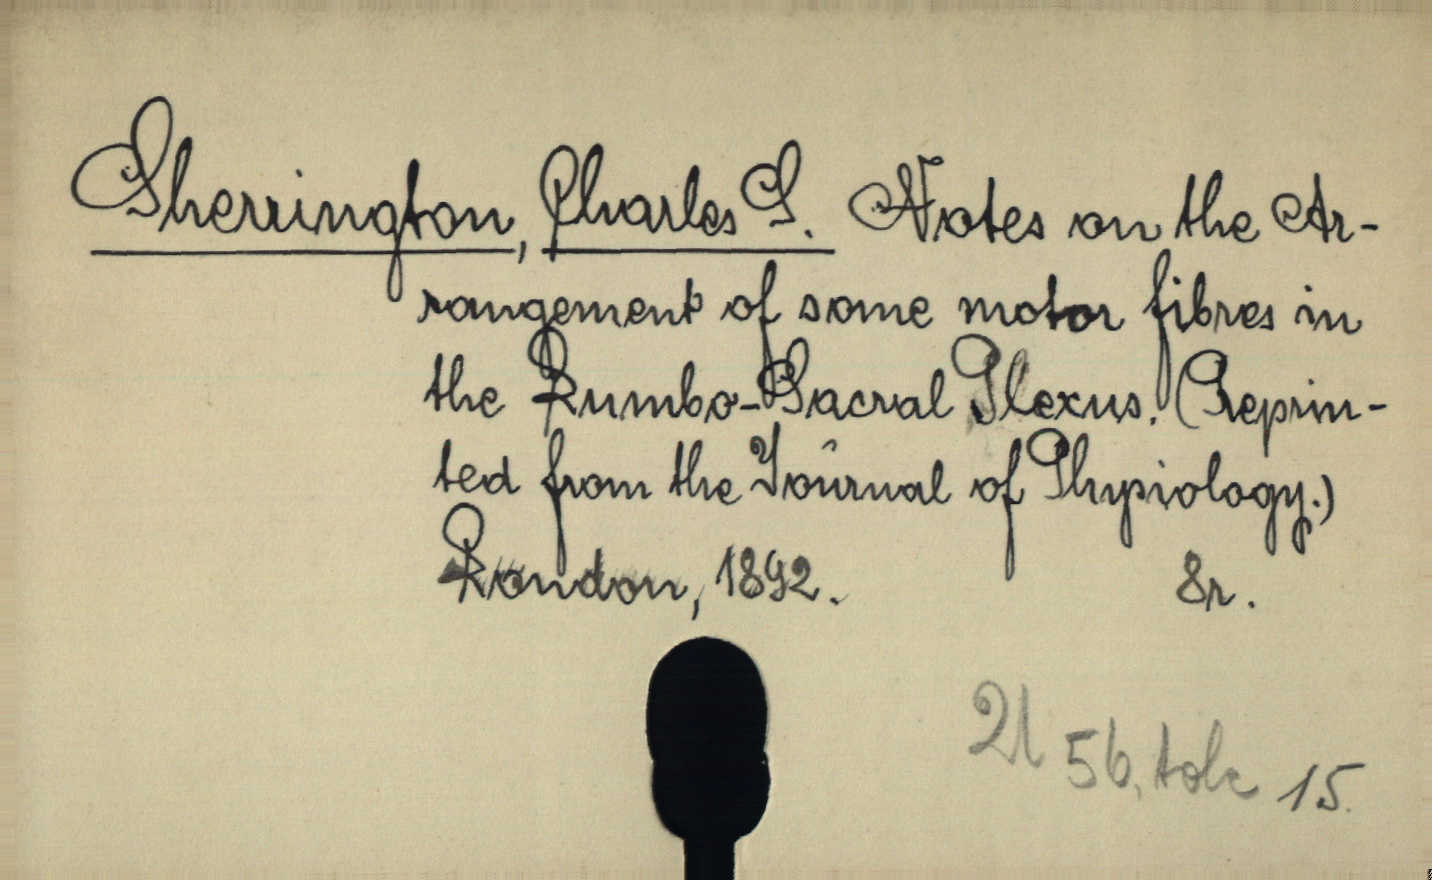 Sherrington, Charles S. Notes on the Ar-
rangement of some motor fibres in
the Lumbo-Sacral Plexus. (Reprin-
ted from the Journal of Physiology.)
London, 1892. 8r.
56, 15.